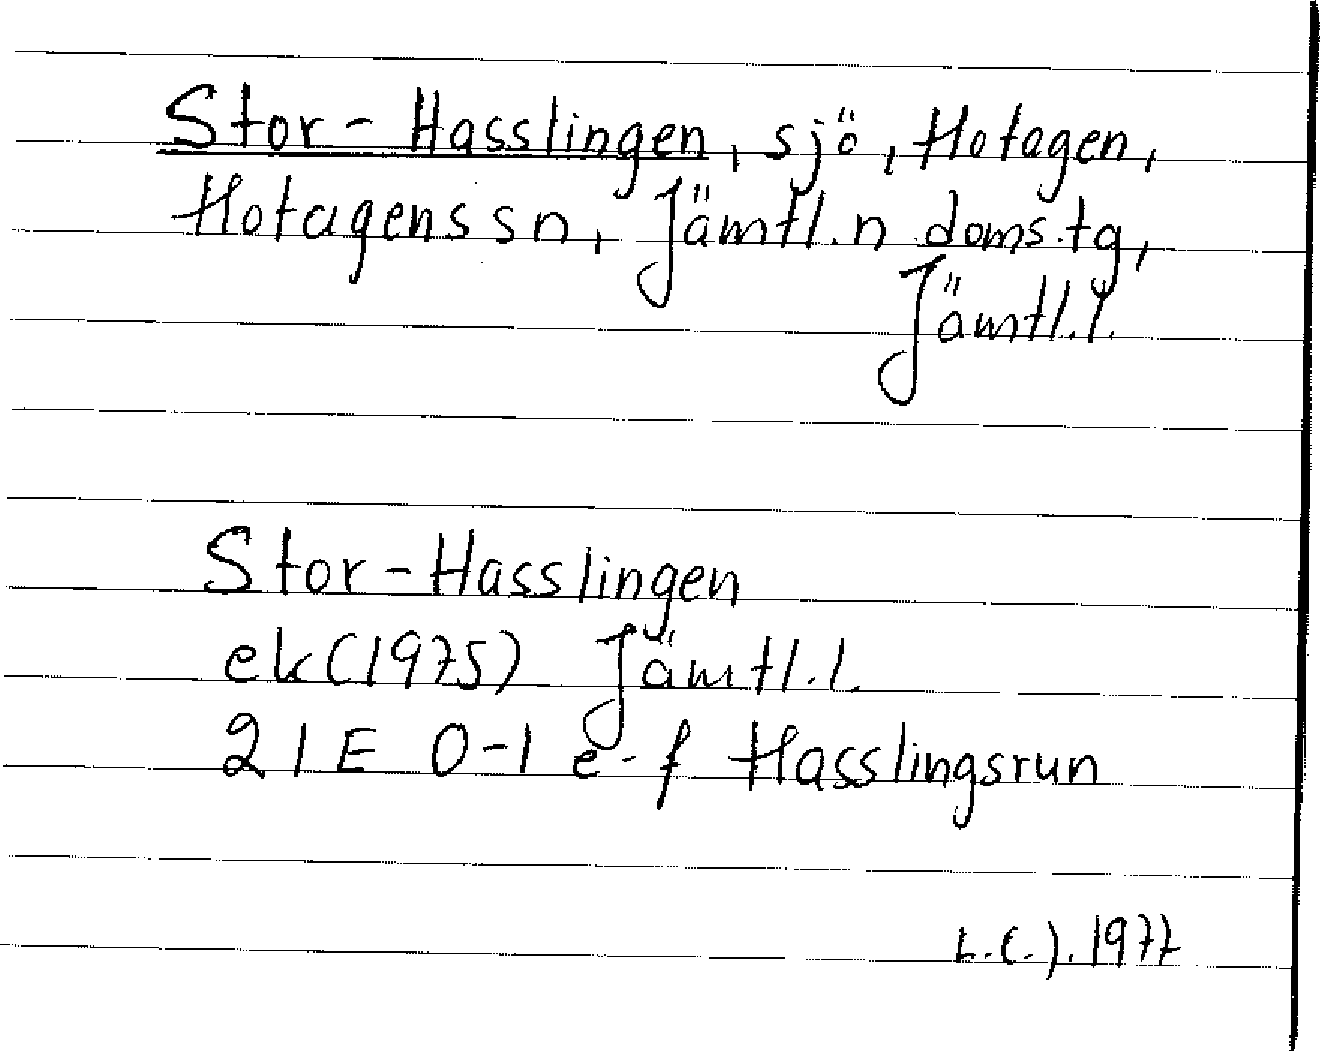 Stor-Hasslingen, sjö, Hotagen,
Hotagens sn, Jämtl.n doms.tg,
Jämtl.l.
Stor-Hasslingen
ek (1975) Jämtl.l.
21E 0-1 e-f Hasslingsrun
1977